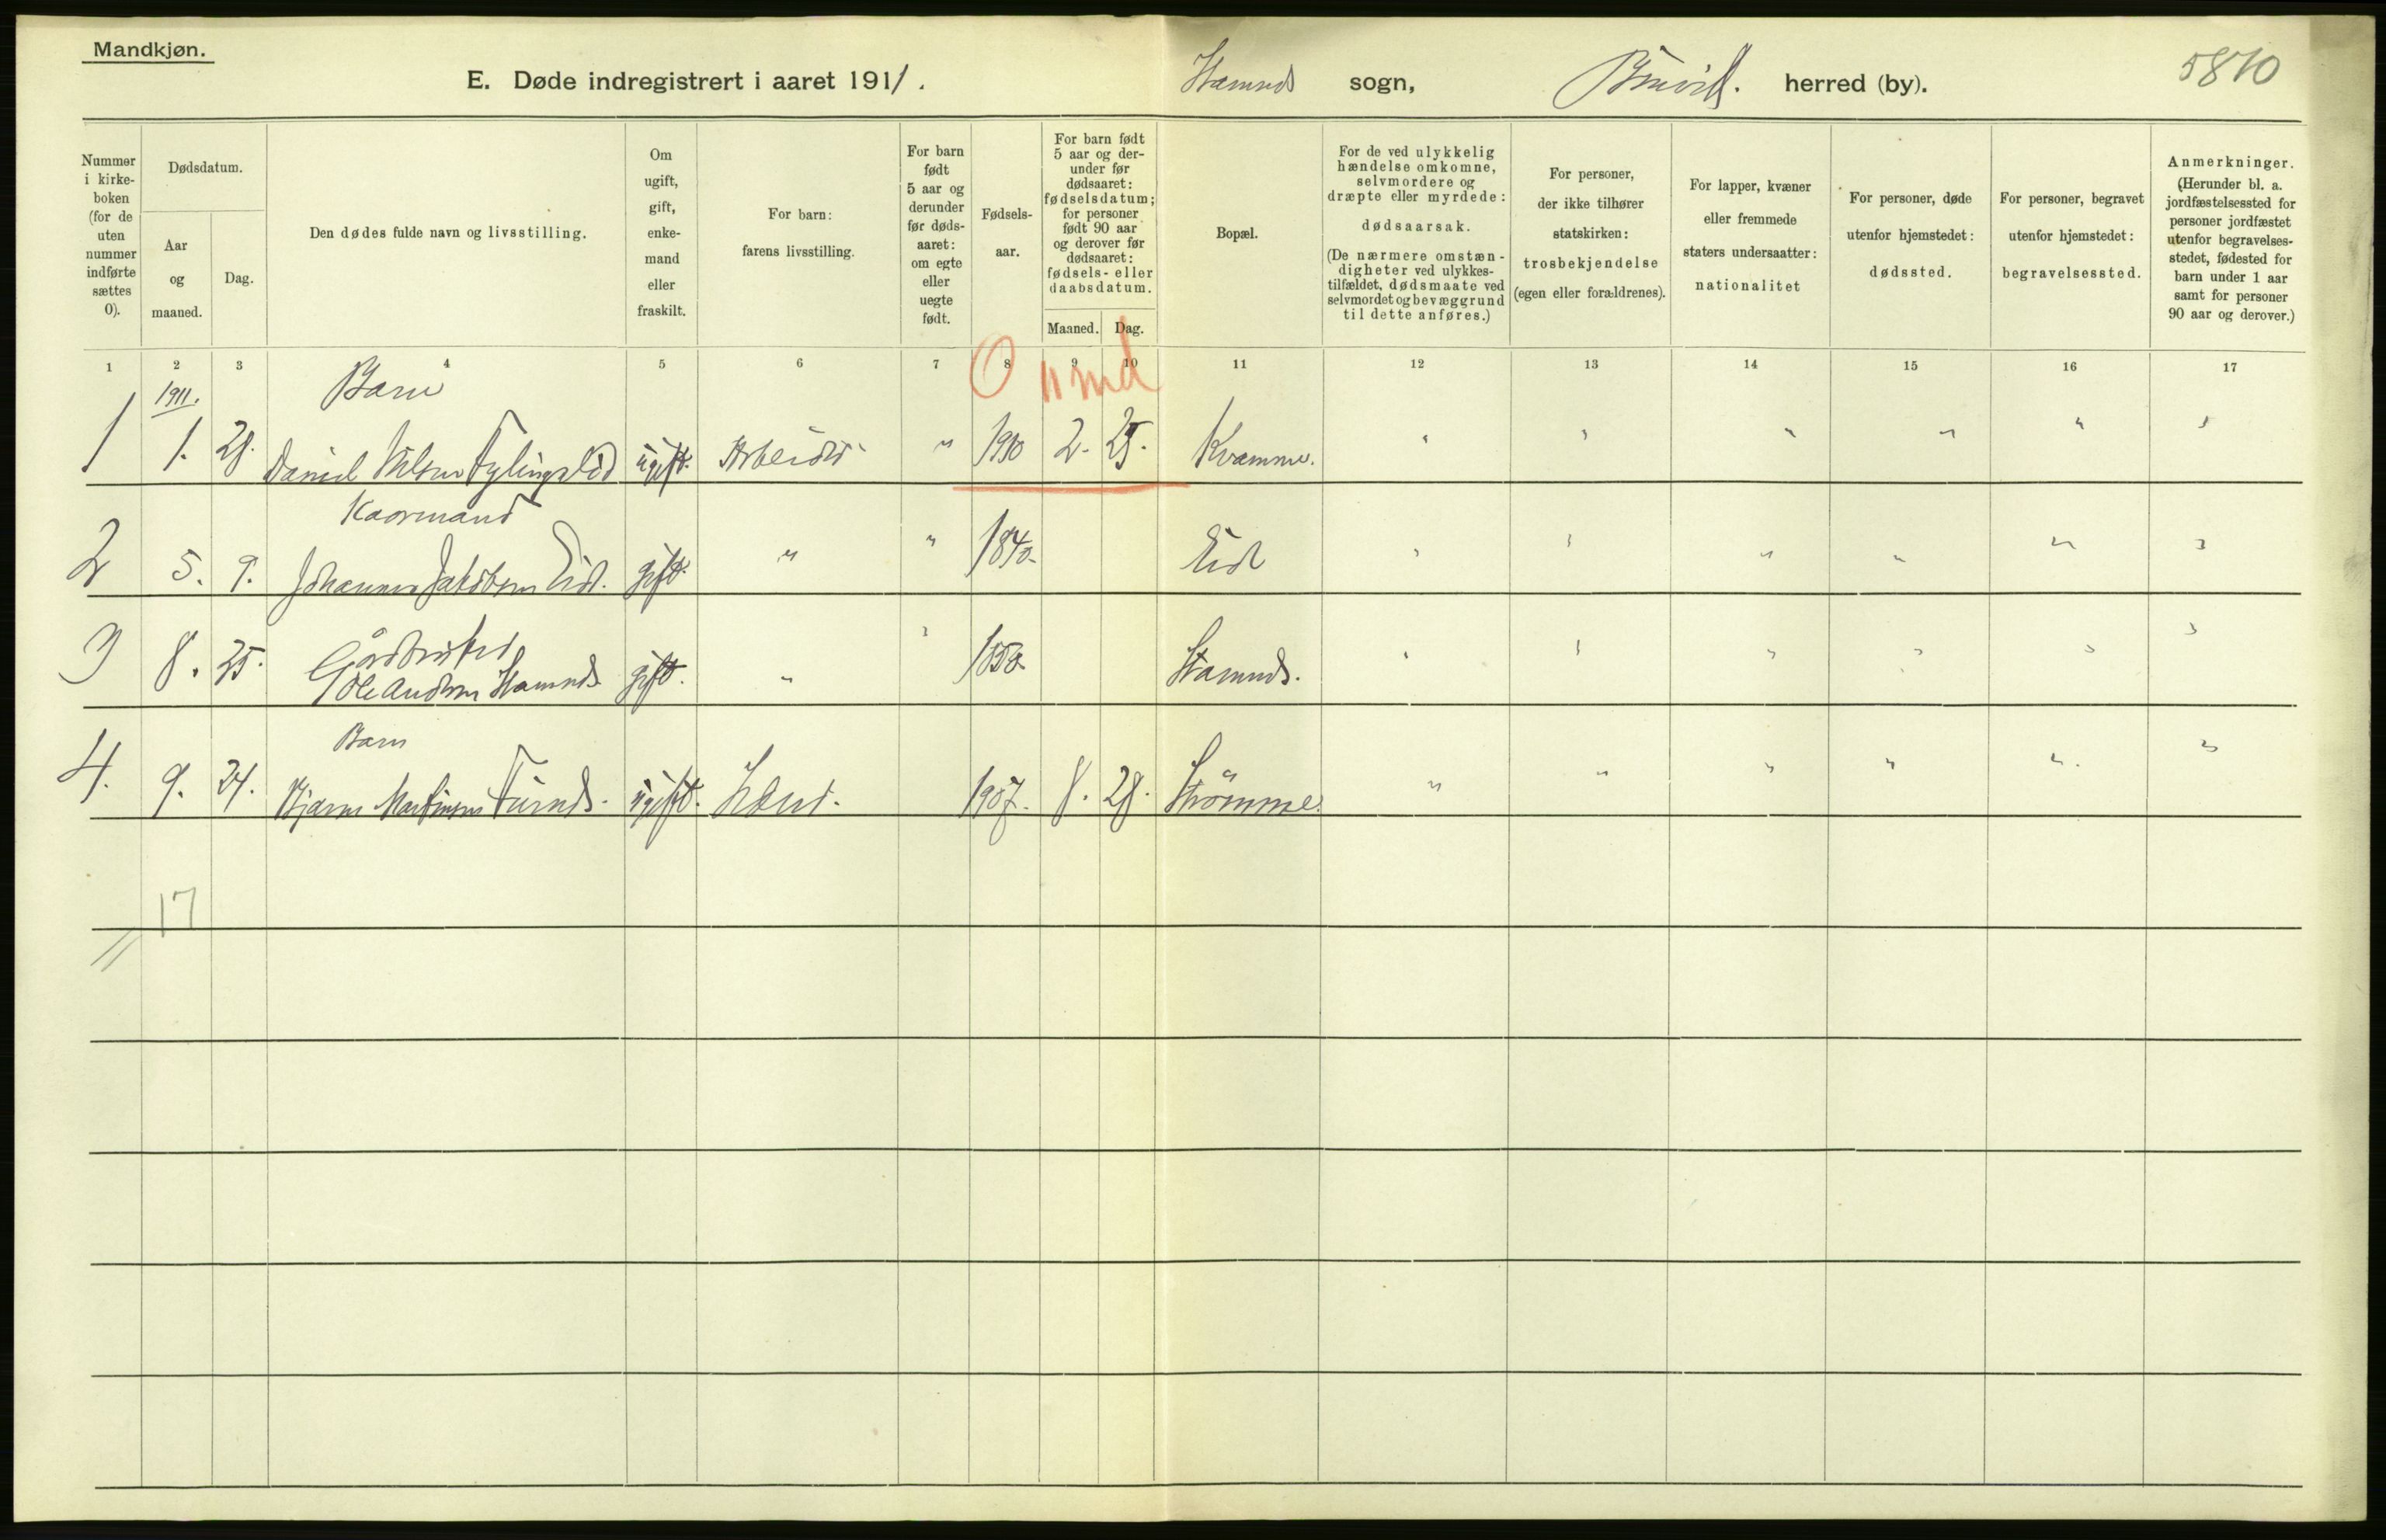 Mandkjøn.
E. Døde indregistrert i aaret 1911. Stamnes sogn, Bruvik. herred (by). 5870
Nummer i kirke-boken (for de uten nummer indførte sættes 0).
Dødsdatum.
Aar og maaned.
Dag.
Den dødes fulde navn og livsstilling.
Om ugift, gift, enke-mand eller fraskilt.
For barn: farens livsstilling.
For barn født 5 aar og derunder før døds-aaret: om egte eller uegte født.
Fødsels-aar.
For barn født 5 aar og der-under før dødsaaret: fødselsdatum; for personer født 90 aar og derover før dødsaaret: fødsels- eller daabsdatum.
Maaned. Dag.
Bopæl.
For de ved ulykkelig hændelse omkomne, selvmordere og dræpte eller myrdede: dødsaarsak.
(De nærmere omstæn-digheter ved ulykkes-tilfældet, dødsmaate ved selvmordet og bevæggrund til dette anføres.)
For personer, der ikke tilhører statskirken: trosbekjendelse (egen eller forældrenes).
For lapper, kvæner eller fremmede staters undersaatter: nationalitet
For personer, døde utenfor hjemstedet: dødssted.
For personer, begravet utenfor hjemstedet: begravelsessted.
Anmerkninger. (Herunder bl. a. jordfæstelsessted for personer jordfæstet utenfor begravelses-stedet, fødested for barn under 1 aar samt for personer 90 aar og derover.)
1 2 3 4 5 6 7 8 9 10 11 12 13 14 15 16 17
0 11 md
1911. Barn
1 1. 28. Daniel Nilsen Fylingslid ugift. Arbeider " 1910 2. 25. Kvamme. " " " " " "
Kaarmand
2 5. 9. Johannes Jakobsen Eid. gift. " " 1840. Eid " " " " " "
Gårdbruker
3 8. 25. Ole Andersen Stamnes gift. " " 1850. Stamnes. " " " " " "
Barn
4. 9. 24. Bjarne Martinsen ugift. 1907. 8. 28. Strømme. " " " " " "
17